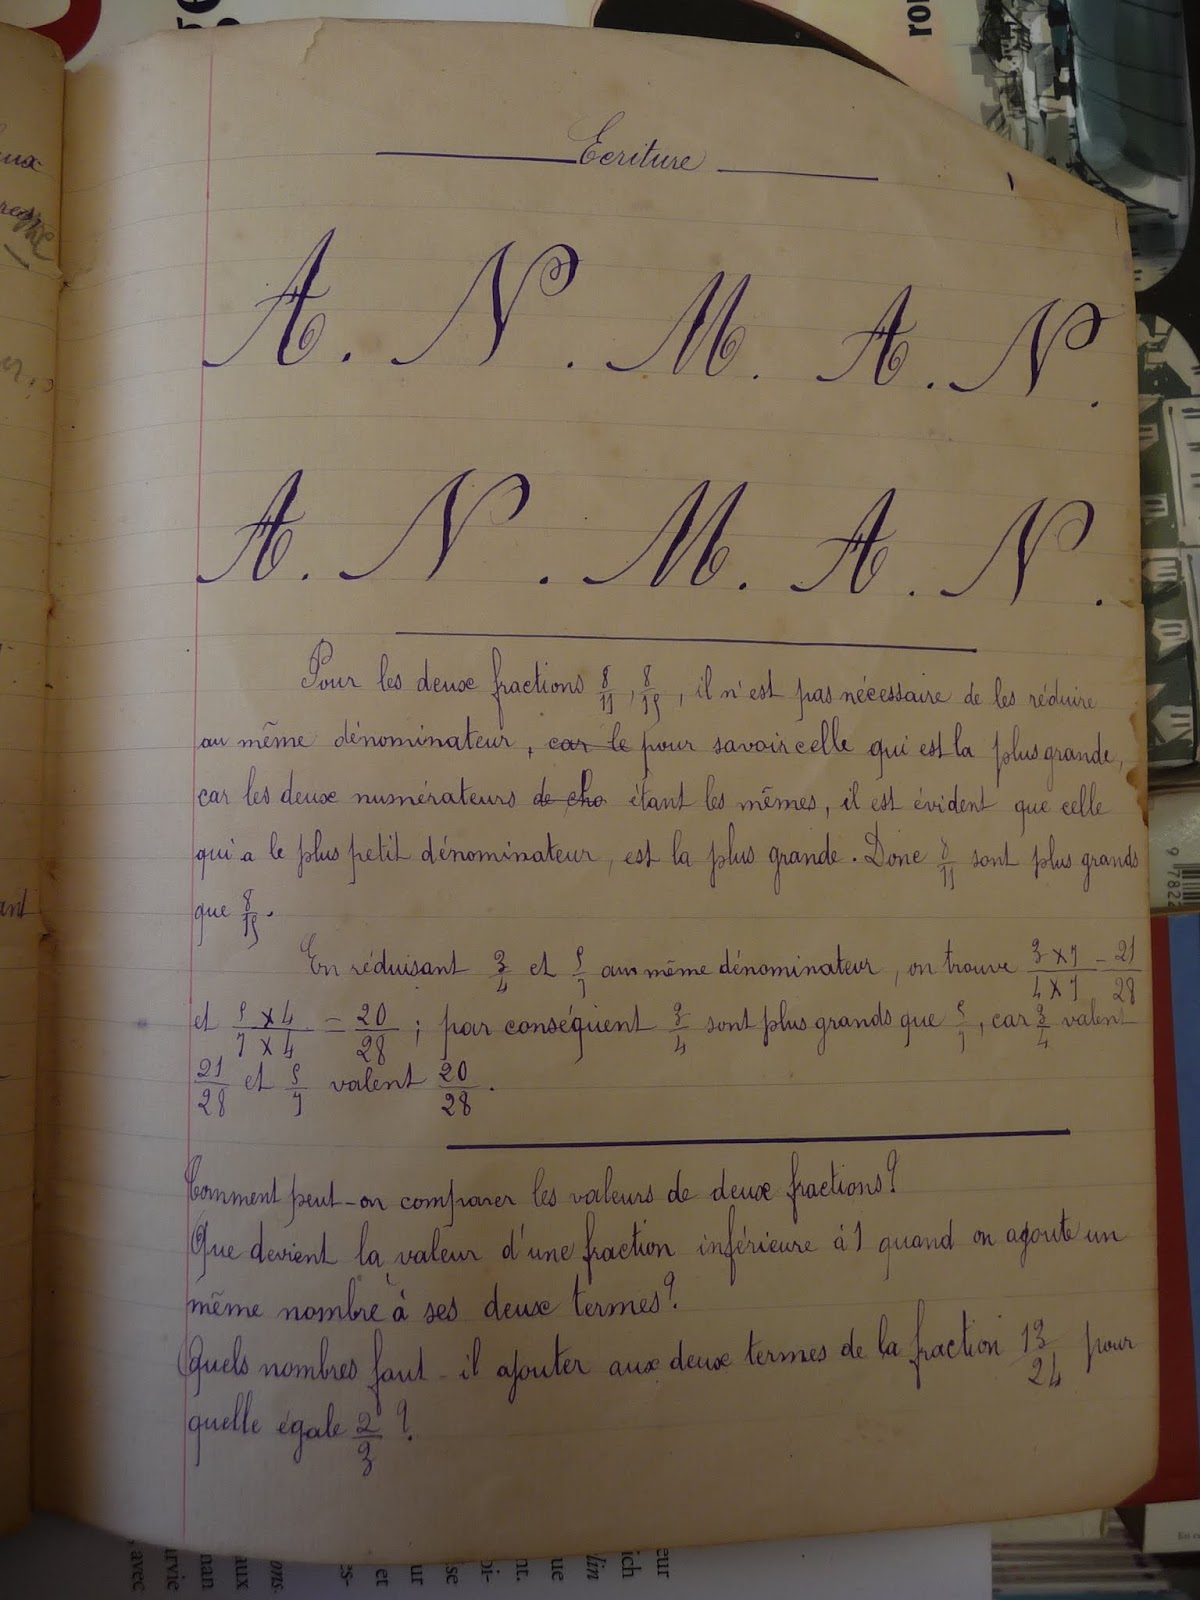 Ecriture
A. N. M. A. N.
A. N. M. A. N.
Pour les deux fractions 8/11, 8/15, il n'est pas nécessaire de les réduire
au même dénominateur, car le pour savoir celle qui est la plus grande,
car les deux numérateurs de cho étant les mêmes, il est évident que celle
qui a le plus petit dénominateur, est la plus grande. Donc 8/11 sont plus grands
que 8/15.
En réduisant 3/4 et 5/7 au même dénominateur, on trouve 3 x 7 / 4 x 7 = 21/28
et 5 x 4 / 7 x 4 = 20/28 ; par conséquent 3/4 sont plus grands que 5/7, car 3/4 valent
21/28 et 5/7 valent 20/28.
Comment peut-on comparer les valeurs de deux fractions?
Que devient la valeur d'une fraction inférieure à 1 quand on ajoute un
même nombre à ses deux termes?
Quels nombres faut-il ajouter aux deux termes de la fraction 13/24 pour
quelle égale 2/3 ?